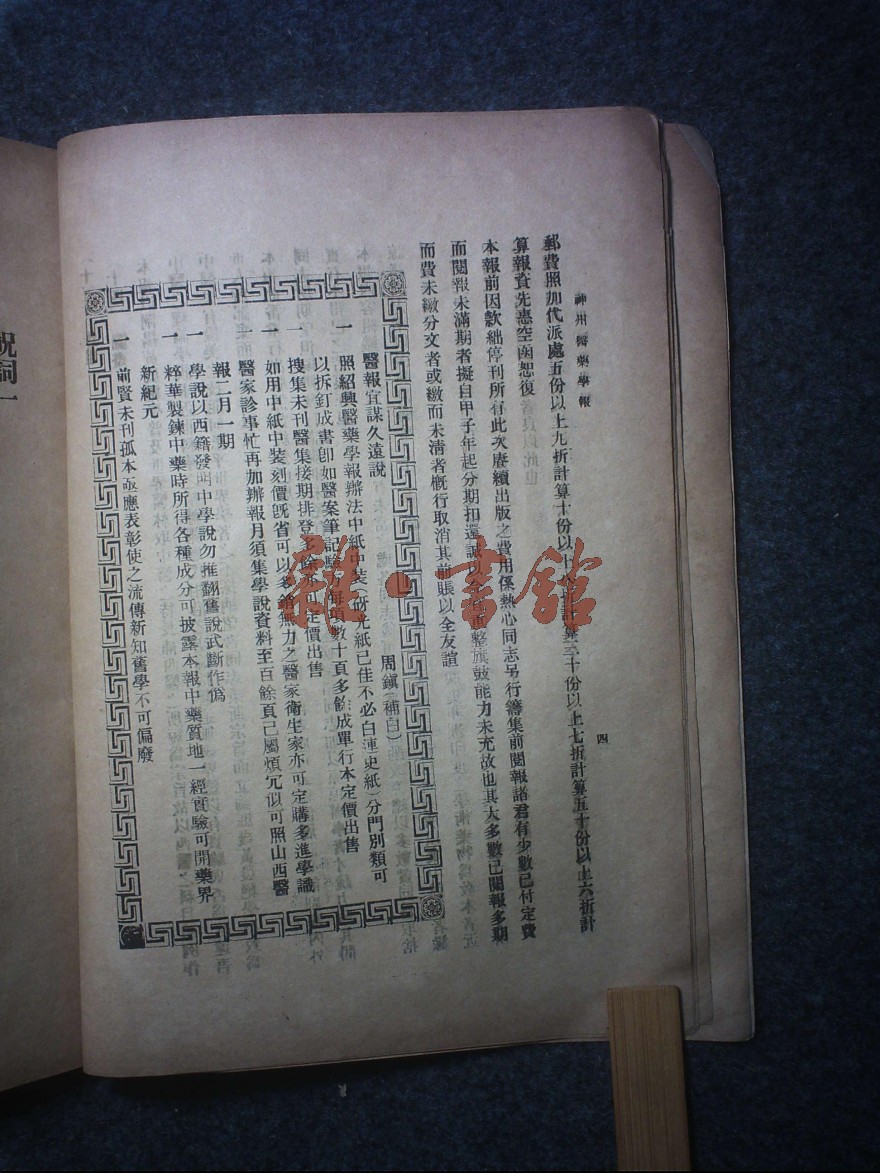 神州醫藥學報
四
郵費照加代派處五份以上九折計算十份以上八折計算三十份以上七折計算五十份以上六折計
算報資先惠空函恕復
本報前因款絀停刊所有此次賡續出版之費用係熱心同志另行籌集前閱報諸君有少數已付定費
而閱報未滿期者擬自甲子年起分期扣還誠以今值重整旗鼓能力未充故也其大多數已閱報多期
而費未繳分文者或繳而未清者概行取消其前賬以全友誼
醫報宜謀久遠說
周鎮(補白)
一 照紹興醫藥學報辦法中紙中裝(砑光紙已佳不必白連史紙)分門別類可
以拆釘成書卽如醫案筆記驗 每項數十頁多餘成單行本定價出售
一 搜集未刊醫集接期排登多餘亦可定價出售
一 如用中紙中裝刻價旣省可以多銷無力之醫家衛生家亦可定購多進學識
一 醫家診事忙再加辦報月須集學說資料至百餘頁已屬煩冗似可照山西醫
報二月一期
一 學說以西籍發明中學說勿推翻舊說武斷作僞
一 粹華製鍊中藥時所得各種成分可披露本報中藥質地一經實驗可開藥界
新紀元
一 前賢未刊孤本亟應表彰使之流傳新知舊學不可偏廢
祝詞一
雜·書館